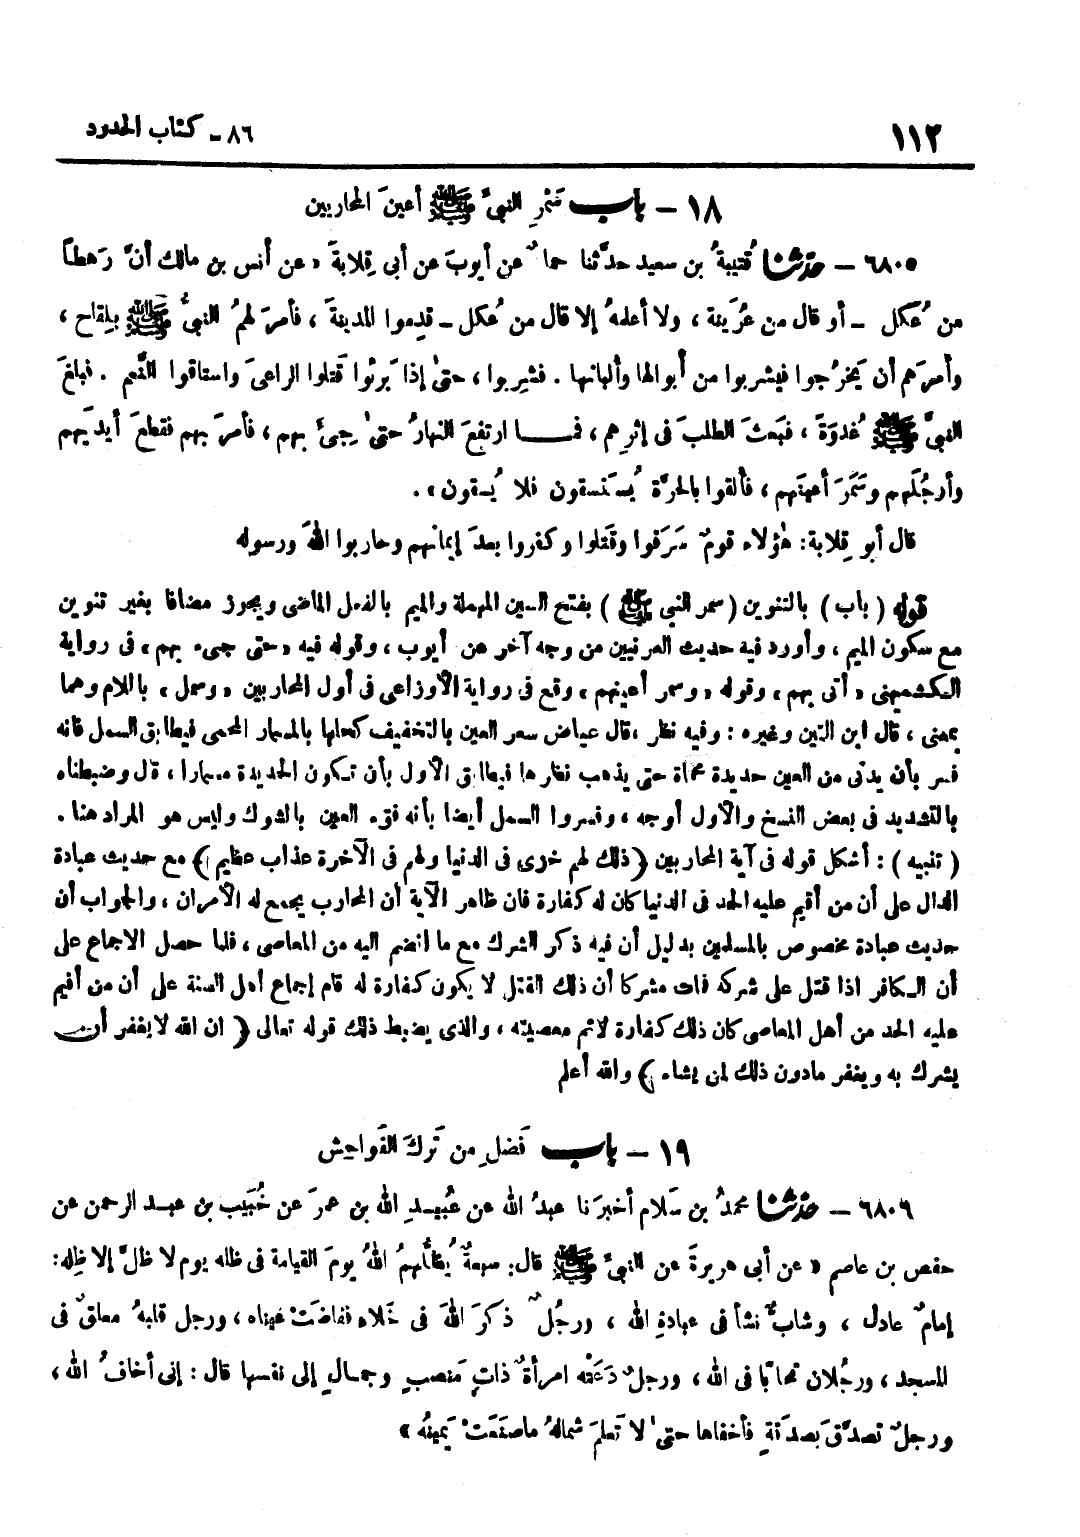 ١١٢
٨٦ - كتاب الحدود
١٨ - باب سَمْرِ النبيِّ ﷺ أعينَ المحاربين
٦٨٠٥ - حدثنا قُتيبةُ بن سعيد حدَّثنا حمادٌ عن أيوبَ عن أبى قِلابةَ « عن أنس بن مالك أنَّ رَهطاً
من عُكل - أو قال من عُرَينة ، ولا أعلمهُ إلا قال من عُكل - قدِموا المدينةَ ، فأمرَ لهمُ النبيُّ ﷺ بلِقاح ،
وأمرَهم أن يَخرُجوا فيشربوا من أبوالها وألبانها . فشرِبوا ، حتىٰ إذا بَرِئوا قَتلوا الراعىَ واستاقوا النَّعم . فبلغَ
النبيَّ ﷺ غُدوَةً ، فبَعثَ الطلبَ فى إثرِهم ، فمـا ارتفعَ النهارُ حتىٰ جِىءَ بهم ، فأمرَ بهم فقطعَ أيديَهم
وأرجُلَهم وسَمَرَ أعينَهم ، فألقوا بالحرَّة يُستَسقون فلا يُسقون » .
قال أبو قِلابة: هٰؤلاء قومٌ سَرَقوا وقَتلوا وكفروا بعدَ إيمانهم وحاربوا اللهَ ورسوله
قوله ( باب ) بالتنوين ( سمر النبى ﷺ ) بفتح السين المهملة والميم بالفعل الماضى ويجوز مضافا بغير تنوين
مع سكون الميم ، وأورد فيه حديث العرنيين من وجه آخر عن أيوب ، وقوله فيه « حتى جىء بهم » فى رواية
الكشميهنى « أتى بهم » وقوله « وسمر أعينهم » وقع فى رواية الأوزاعى فى أول المحاربين « وسمل » باللام وهما
بمعنى ، قال ابن التين وغيره : وفيه نظر ، قال عياض سمر العين بالتخفيف كحلها بالمسمار المحمى فيطابق السمل فانه
فسر بأن يدنى من العين حديدة محماة حتى يذهب نظرها فيطابق الأول بأن تكون الحديدة مسمارا ، قال وضبطناه
بالتشديد فى بعض النسخ والأول أوجه ، وفسروا السمل أيضا بأنه فقء العين بالشوك وليس هو المراد هنا .
( تنبيه ) : أشكل قوله فى آية المحاربين ﴿ ذلك لهم خزى فى الدنيا ولهم فى الآخرة عذاب عظيم ﴾ مع حديث عبادة
الدال على أن من أقيم عليه الحد فى الدنيا كان له كفارة فان ظاهر الآية أن المحارب يجمع له الأمران ، والجواب أن
حديث عبادة مخصوص بالمسلمين بدليل أن فيه ذكر الشرك مع ما انضم اليه من المعاصى ، فلما حصل الاجماع على
أن الكافر اذا قتل على شركه فمات مشركا أن ذلك القتل لا يكون كفارة له قام إجماع أهل السنة على أن من أقيم
عليه الحد من أهل المعاصى كان ذلك كفارة لاثم معصيته ، والذى يضبط ذلك قوله تعالى ﴿ ان الله لا يغفر أن
يشرك به ويغفر مادون ذلك لمن يشاء ﴾ والله أعلم
١٩ - باب فَضلِ من تَركَ الفَواحِش
٦٨٠٦ - حدثنا محمدُ بن سَلام أخبرَنا عبدُ الله عن عُبيدِ الله بن عمرَ عن خُبَيب بن عبد الرحمن عن
حفص بن عاصم « عن أبى هريرةَ عن النبىِّ ﷺ قال: سبعةٌ يُظلُّهمُ اللهُ يومَ القيامة فى ظله يوم لا ظلَّ إلا ظله:
إمامٌ عادل ، وشابٌّ نشأ فى عبادةِ الله ، ورجُلٌ ذكرَ اللهَ فى خَلاء ففاضَتْ عيناه ، ورجل قلبهُ معلقٌ فى
المسجد ، ورجُلان تحابَّا فى الله ، ورجلٌ دَعَتْه امرأةٌ ذاتُ مَنصبٍ وجمـالٍ إلى نفسها قال : إنى أخافُ الله ،
ورجلٌ تصدَّقَ بصدَقةٍ فأخفاها حتىٰ لا تَعلمَ شمالهُ ماصَنَعَتْ يَمينُه »